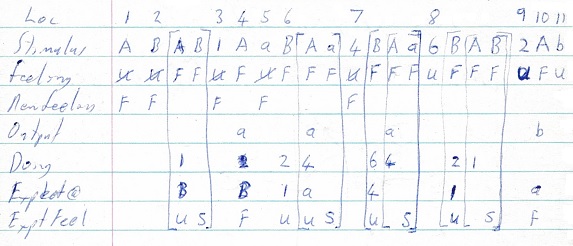 Loc 1 2 3 4 5 6 7 8 9 10 11
Stimulus A B [A B] 1 A a B [A a] 4 [B A a] 6 [B A B] 2 A b
Feeling U U F F U F U F F F U F F F U F F F U F U
New Feeling F F F F F
Output a a a b
Doing 1 2 2 4 6 4 2 1
Expect@ B B 1 a 4 1 a
Expt Feel [U S] F U [U S] [U S] [U S] F